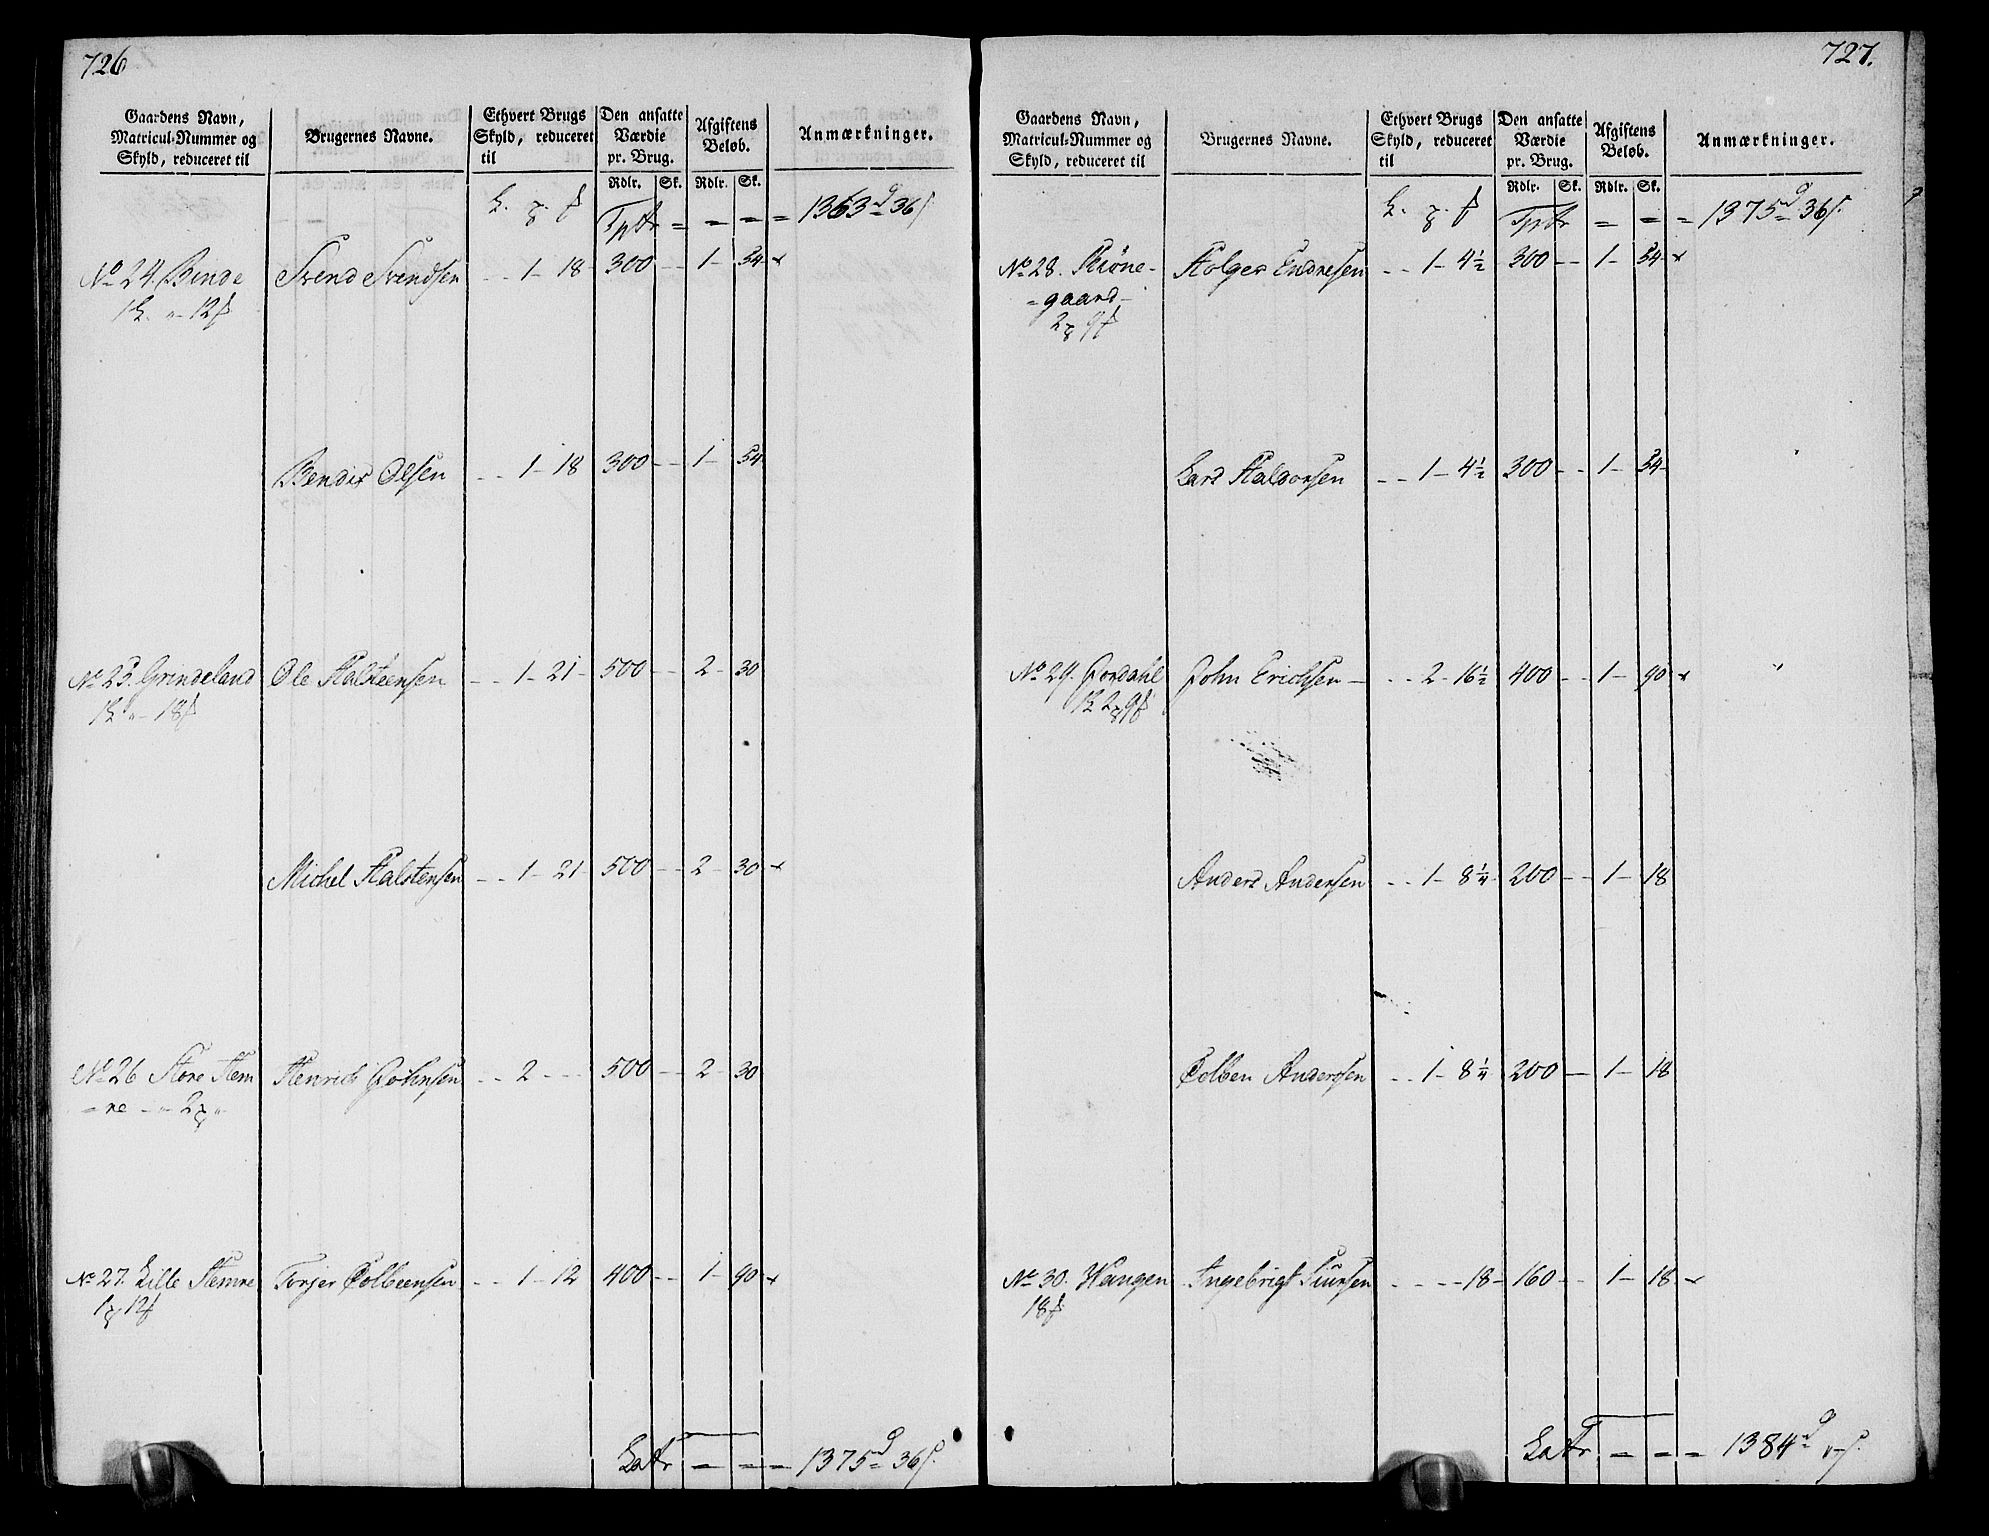 726
Gaardens Navn, Matricul-Nummer og Skyld, reduceret til
Brugernes Navne.
Ethvert Brugs Skyld, reduceret til
Den ansatte Værdie pr. Brug.
Afgiftens Beløb.
Anmærkninger.
Rdlr. Sk. Rdlr. Sk.
Tptr = = = = 1363 d 36 s.
No 24. Binde Svend Svendsen - - 1 - 18 - 300 - - 1 - 54 x
12 f
Bendix Olsen - - 1 - 18 300 - - 1 - 54
No 25. Grindeland Ole Halsteensen - - 1 - 21 - 500 - - 2 - 30
18 f
Michel Halstensen - - 1 - 21 - 500 - - 2 - 30 x
No 26 Store Hem Henrich Johnsen - - 2 - - - 500 - - 2 - 30
= re - " - 2 "
No 27. Lille Hemre Torjer Colbeensen - - 1 - 12 400 - - 1 - 90 x
1 12 f
Latr = = = 1375 d 36 s.
727.
Gaardens Navn, Matricul-Nummer og Skyld, reduceret til
Brugernes Navne.
Ethvert Brugs Skyld, reduceret til
Den ansatte Værdie pr. Brug.
Afgiftens Beløb.
Anmærkninger.
Rdlr. Sk. Rdlr. Sk.
Tptr = = = 1375 d 36 s.
No 28. Thiøne- Holger Endresen - - 1 - 4 1/2 300 - - 1 - 54 x
= gaard -
2 9 f
Lars Haldorsen - - 1 - 4 1/2 300 - - 1 - 54
No 29. Jordahl John Erichsen - - - 2 - 16 1/2 400 - - 1 - 90 x
2 9 f
Anders Andersen - - 1 - 8 1/4 200 - - 1 - 18
Colben Anderssen - - 1 - 8 1/4 200 - 1 - 18
No 30. Wangen Ingebrigt Siursen - - - - 18 - 160 - - 1 - 18 x
18 f
Latr = = = 1384 d " s.